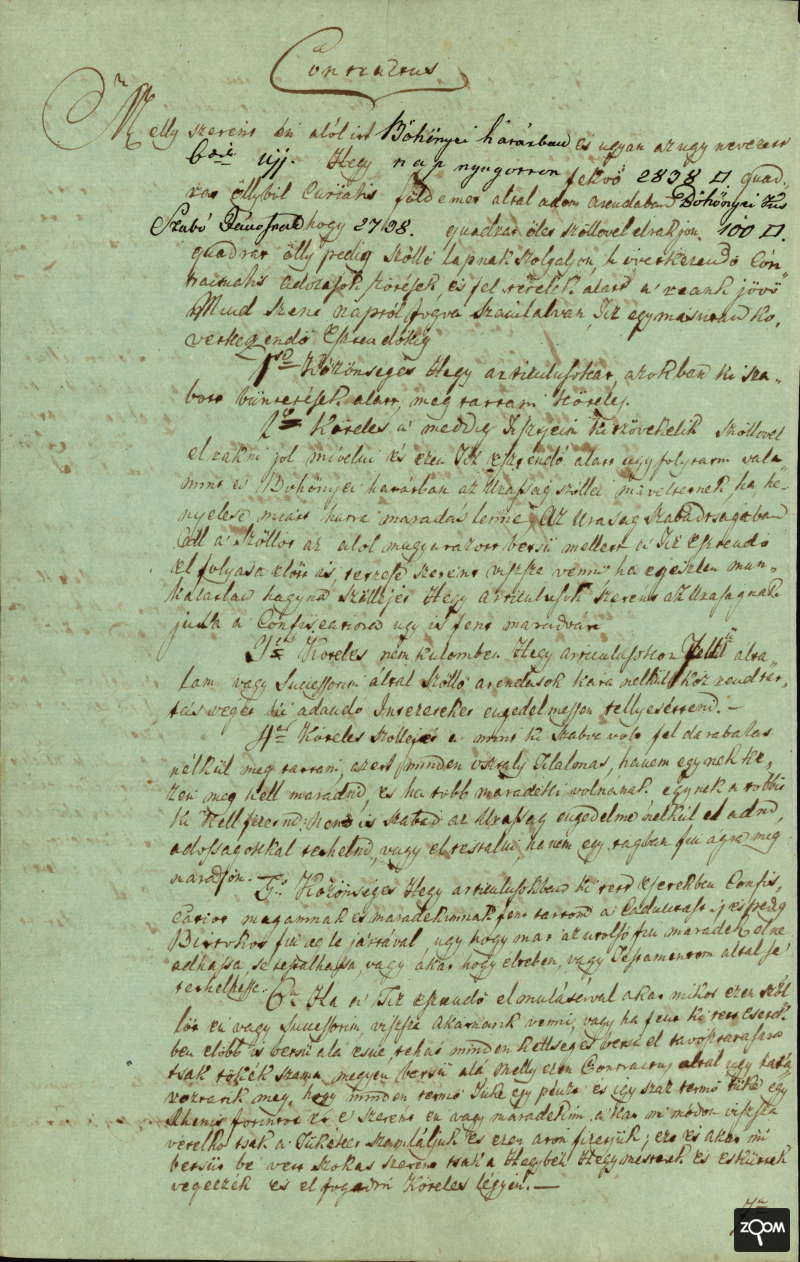 Contractus
Melly szerént én alól irt Bőhönyei határban és ugyan az ugy nevezett
Ujj Hegy nap nyugotton fekvő 2838 □ quad
rat öllybűl Curiális földemet által adom arendaban Böhönyei
Szabó hogy 2798. quadrat ölet szöllővel elrakjon 100 □.
quadrat ölly pedig szöllő lapnak szolgáljon, következendő Con
tractualis adózások, fizetések, és fel tételek alatt a' reánk jövő
Mind Szent naptól fogva számlálván, Tiz egymásután kö,
vetkezendő Esztendőkig
1ső Közönséges Hegy articulusokat azokban ki sza,
bott büntetések alatt, meg tartani köteles.
2 Köteles a' meddig ki szöveketik szöllővel
el rakni jól mivelni és ezen Tiz esztendő alatt ugy folytatni vala
mint a' Böhönyei határban az Uraság szőllei miveltetnek, ha ké,
nyelese miatt hátra maradás lenne, Az Uraság szabadságában
áll a' szöllőt az alól magyarázott bersü mellett a' Tiz Esztendő
el folyása előtt is, tetszése szerént vissza venni, ha egészlen mun,
kálatlan hagyná szöllejét Hegy articulusok szerént az Uraságnak
jussa a' Confiscatiora ugy is fent maradván
3 Köteles nem külömben Hegy articulusokon kivül álta
lam vagy Successorim által szöllő arendások kára nélkül köz rendtar,
tás végett ki adandó Intézeteket engedelmessen tellyesétteni. —
4 Köteles szöllejét a' mint ki szabva volt fel darabolás
nélkül meg tartani, azért minden osztály Tilalmas, hanem egynek ke,
zén meg kell maradni, és ha több maradéki volnának egynek a többit
ki kell fizetni; Nem is szabad az Uraság engedelme nélkül el adni,
adósságokkal terhelni, vagy el testálni, hanem egy tagban fiu ágra meg
maradjon. 5 Közönséges Hegy articulusokban ki tett esetekben Confis,
catiot magamnak és maradékimnak fent tartom a' Caducitást pedig
Birtokos fiu ága le jártával, ugy hogy már az utolsó fiu maradék el ne
adhassa, se testálhassa, vagy akár hogy életében, vagy Testamentom által se'
terhelhesse. 6 Ha a' Tiz esztendő elmulásával akár mikor ezen szöl
lőt én vagy Successorim, vissza akarnánk venni, vagy ha fent ki tett esetek
ben előbb is bersü alá esne, tehát minden kettséges bersü el távoztatására
tsak tőkék száma megyen bersü alá melly ezen Contractus által ugy hatá
roztatik meg, hogy minden termő Tőke egy pénzt és igy száz termő tőke egy
Rhenis forintot ér e' szerént én vagy maradékim, akár mi módon vissza
vételkor tsak a' Tőkéket számláljuk és ezen áron fizetjük; ezt és akár mi
bersüt bé vett szokás szerént tsak a Hegybéli Hegymesterek és eskűttek
végezzék és el fogadni köteles légyen. —
7
ZOOM